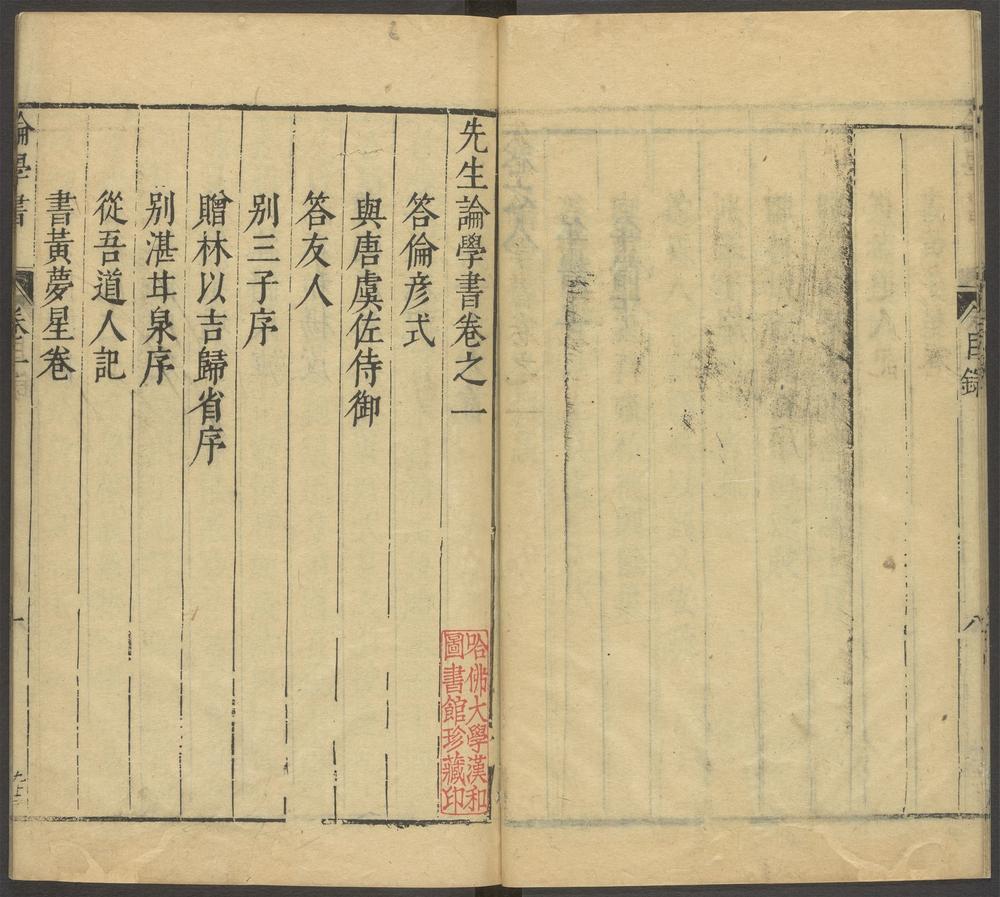 目錄
八
先生論學書卷之一
答倫彦式
與唐虞佐侍御
答友人
別三子序
贈林以吉歸省序
別湛甘泉序
從吾道人記
書黃夢星卷
論學書
卷之一
一
哈佛大學漢和
圖書館珍藏印